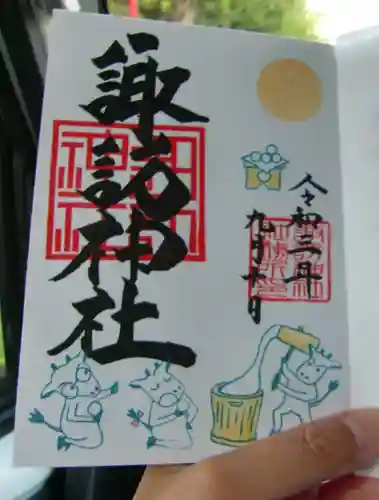 諏訪神社
令和三年
九月十日